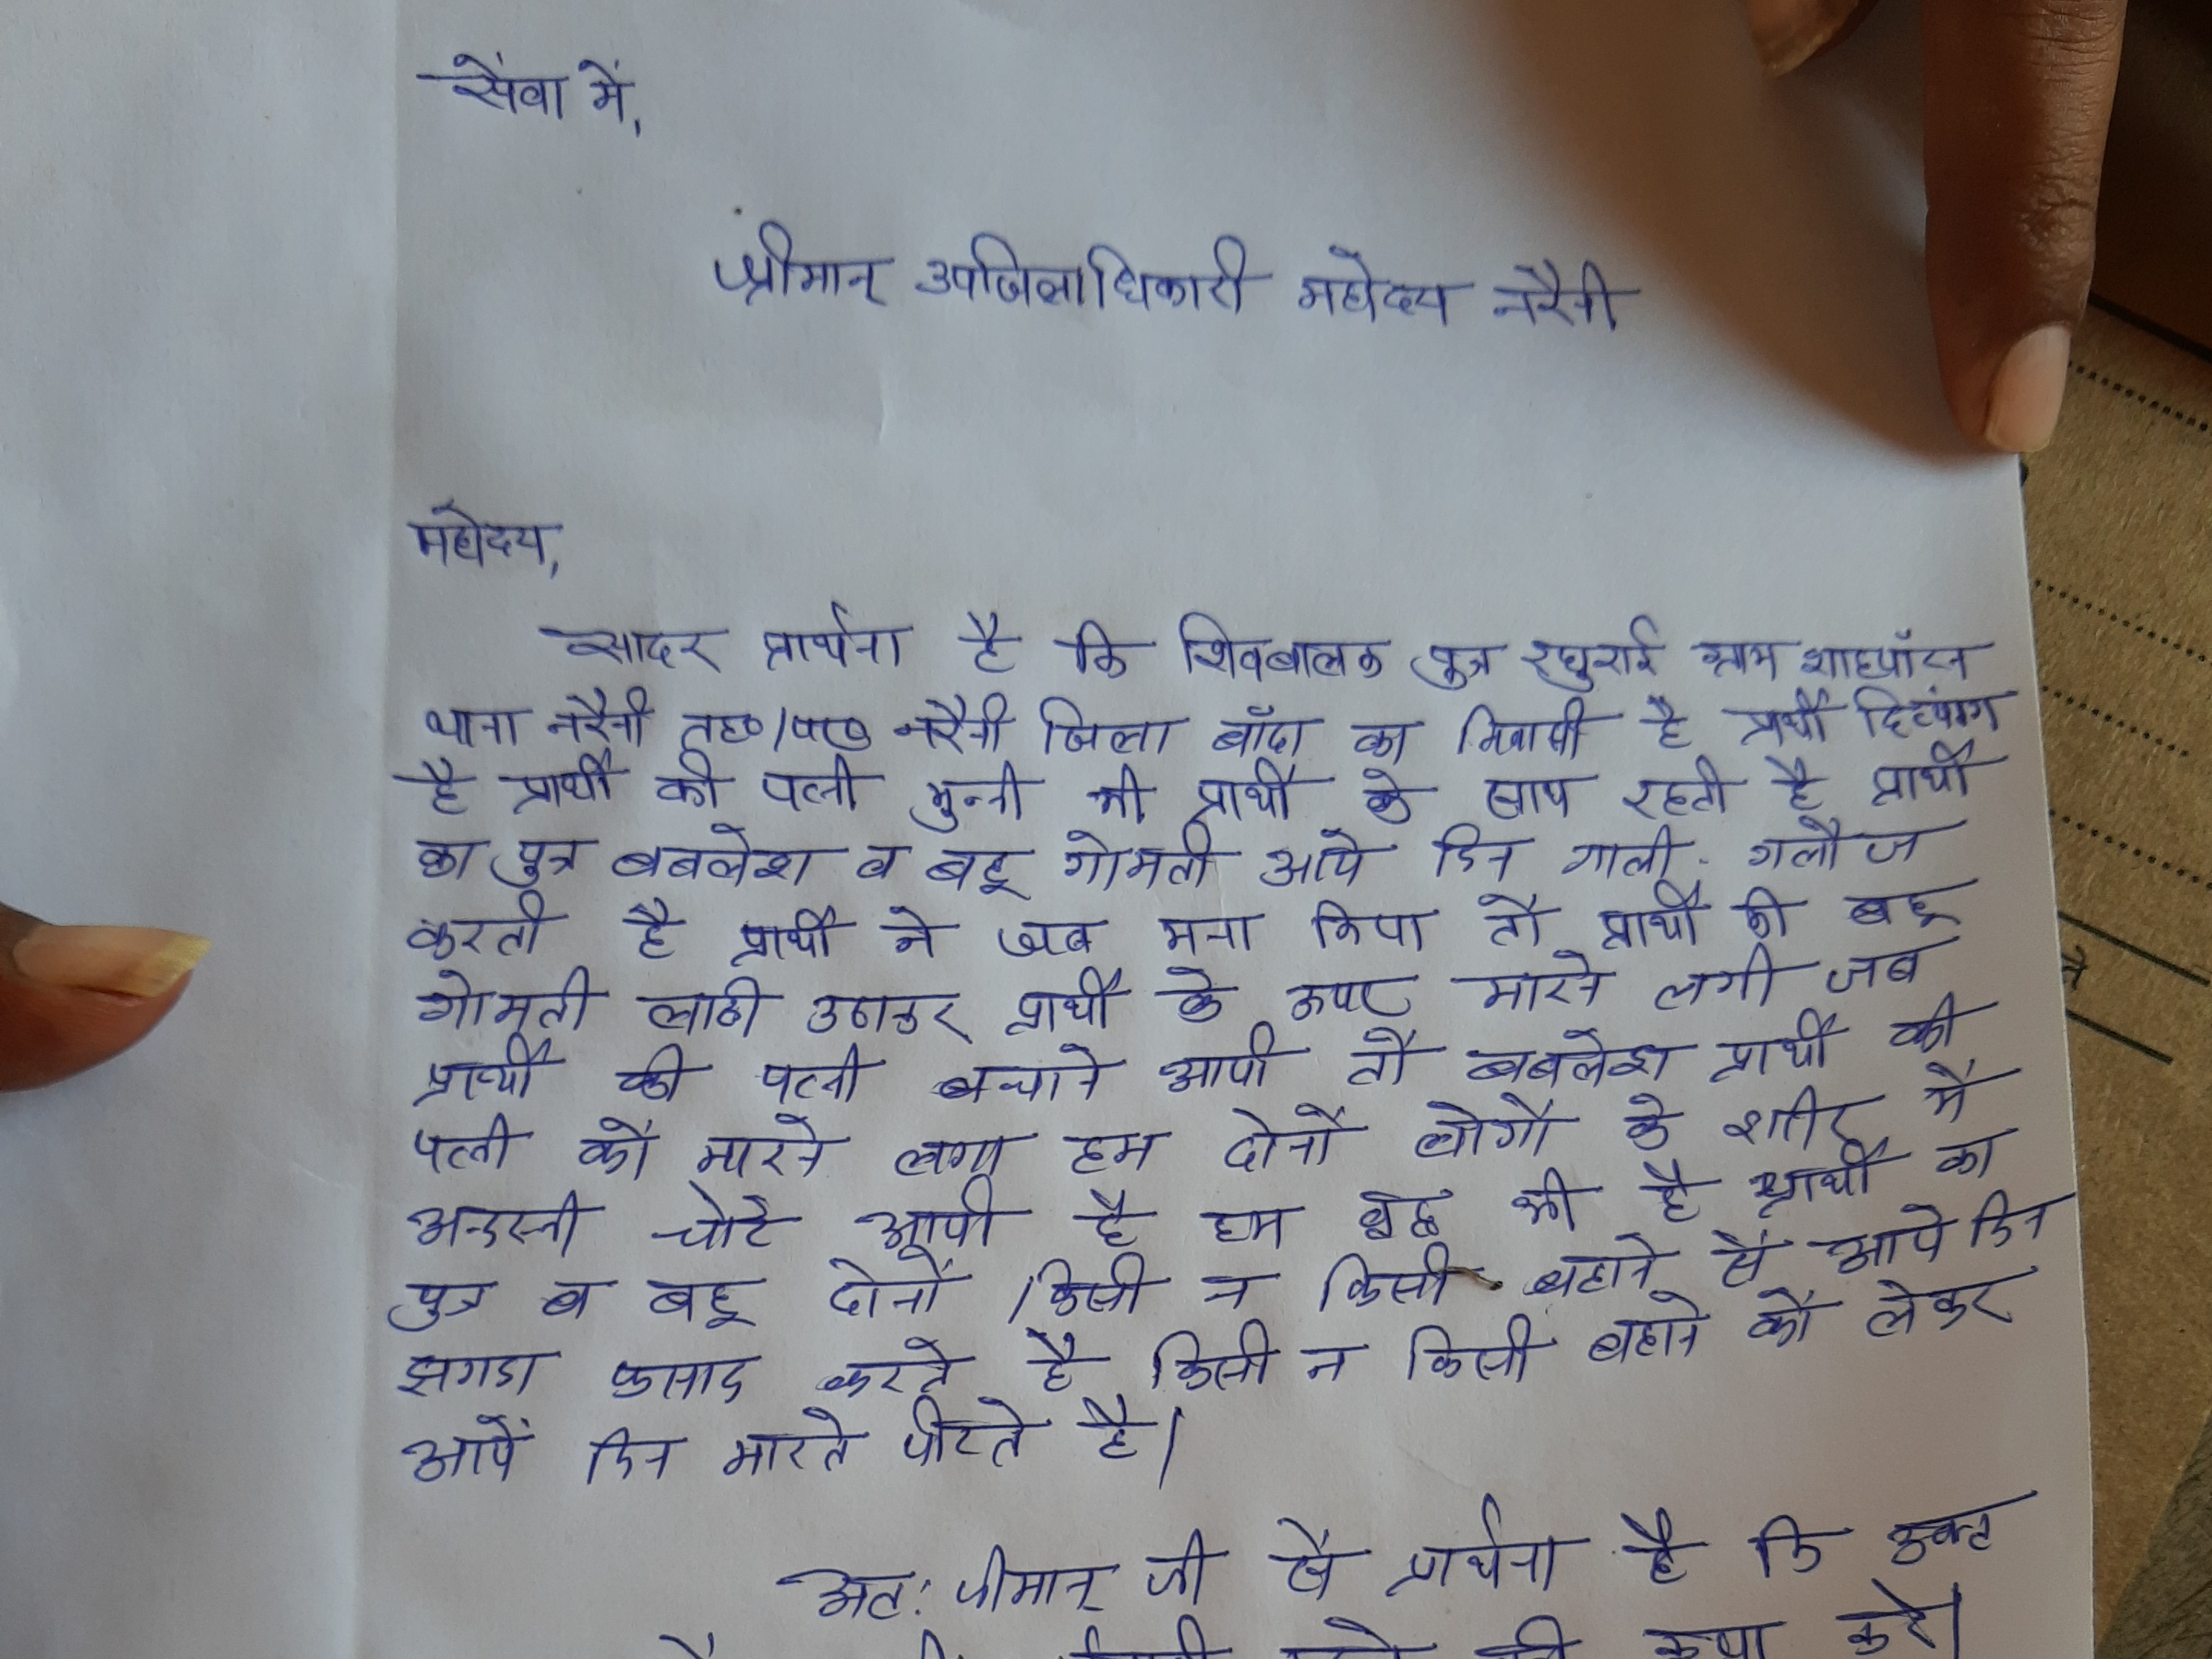 सेवा में,
श्रीमान् उपजिलाधिकारी महोदय नरैनी
महोदय,
सादर प्रार्थना है कि शिवबालक पुत्र रघुराई ग्राम शाहपाटन
थाना नरैनी तह०/पर० नरैनी जिला बाँदा का निवासी है प्रार्थी दिव्यांग
है प्रार्थी की पत्नी मुन्नी भी प्रार्थी के साथ रहती है प्रार्थी
का पुत्र बबलेश व बहू गोमती आये दिन गाली-गलौज
करती है प्रार्थी ने जब मना किया तो प्रार्थी की बहू
गोमती लाठी उठाकर प्रार्थी के ऊपर मारने लगी जब
प्रार्थी की पत्नी बचाने आयी तो बबलेश प्रार्थी की
पत्नी को मारने लगा हम दोनों लोगों के शरीर में
अन्दरूनी चोटे आयी है हम वृद्ध भी है प्रार्थी का
पुत्र व बहू दोनों किसी न किसी बहाने से आये दिन
झगडा फसाद करते है किसी न किसी बहाने को लेकर
आयें दिन मारते पीटते है।
अतः श्रीमान् जी से प्रार्थना है कि उक्त
कृपा करे।